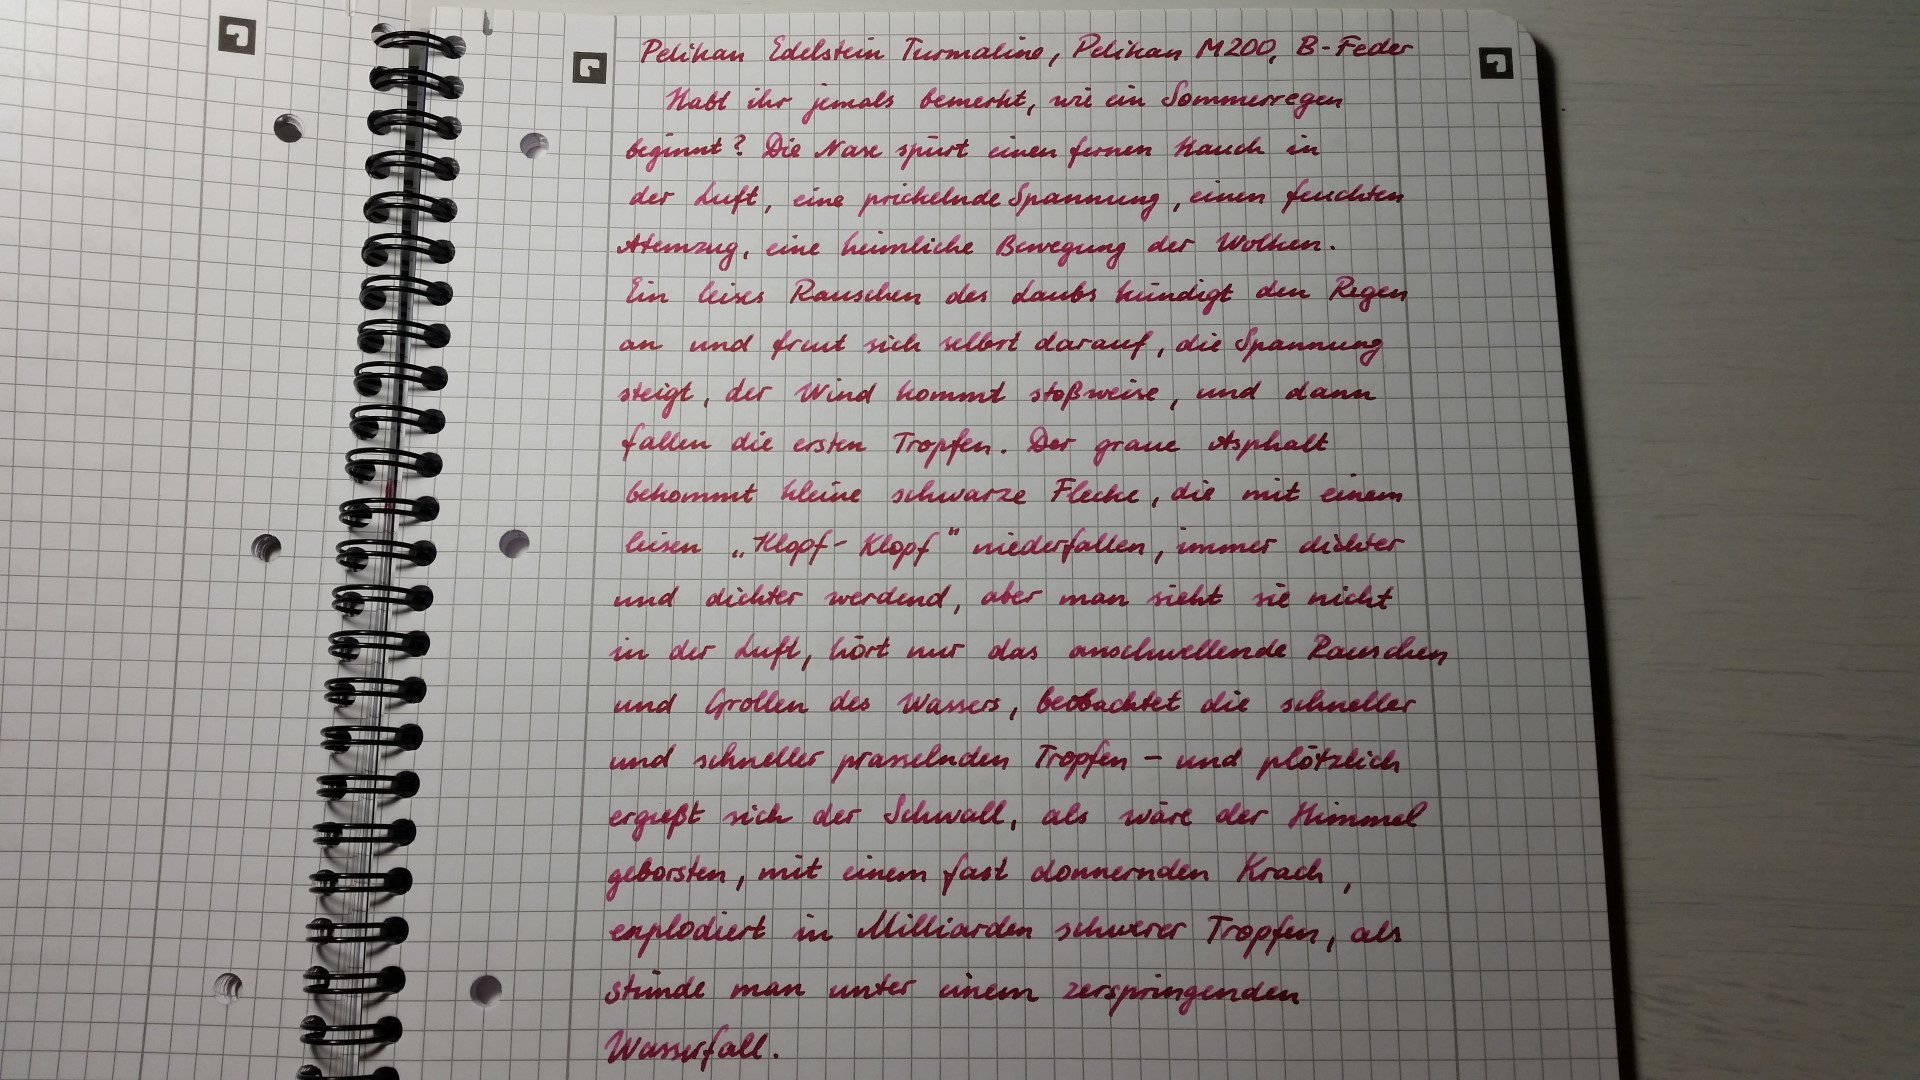 Pelikan Edelstein Turmaline, Pelikan M200, B-Feder
Habt ihr jemals bemerkt, wie ein Sommerregen
beginnt? Die Nase spürt einen fernen Hauch in
der Luft, eine prickelnde Spannung, einen feuchten
Atemzug, eine heimliche Bewegung der Wolken.
Ein leises Rauschen des Laubs kündigt den Regen
an und freut sich selbst darauf, die Spannung
steigt, der Wind kommt stoßweise, und dann
fallen die ersten Tropfen. Der graue Asphalt
bekommt kleine schwarze Flecke, die mit einem
leisen „Klopf-Klopf" niederfallen, immer dichter
und dichter werdend, aber man sieht sie nicht
in der Luft, hört nur das anschwellende Rauschen
und Grollen des Wassers, betrachtet die schneller
und schneller prasselnden Tropfen – und plötzlich
ergießt sich der Schwall, als wäre der Himmel
geborsten, mit einem fast donnernden Krach,
explodiert in Milliarden schwerer Tropfen, als
stünde man unter einem zerspringenden
Wasserfall.